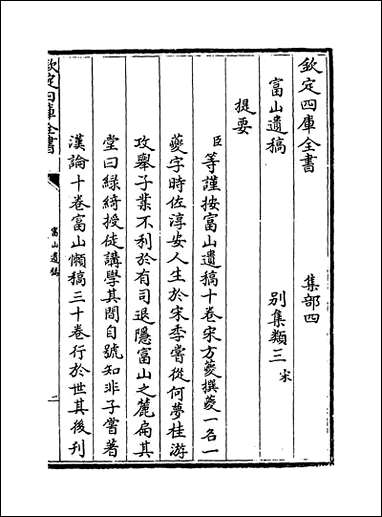 欽定四庫全書
集部四
富山遺稿
别集類三宋
提要
臣等謹按富山遺稿十卷宋方夔撰夔一名一
夔字時佐淳安人生於宋季嘗從何夢桂游
攻舉子業不利於有司退隱富山之麓扁其
堂曰綠綺授徒講學其間自號知非子嘗著
漢論十卷富山懶稿三十卷行於世其後刋
欽定四庫全書
富山遺稿
一